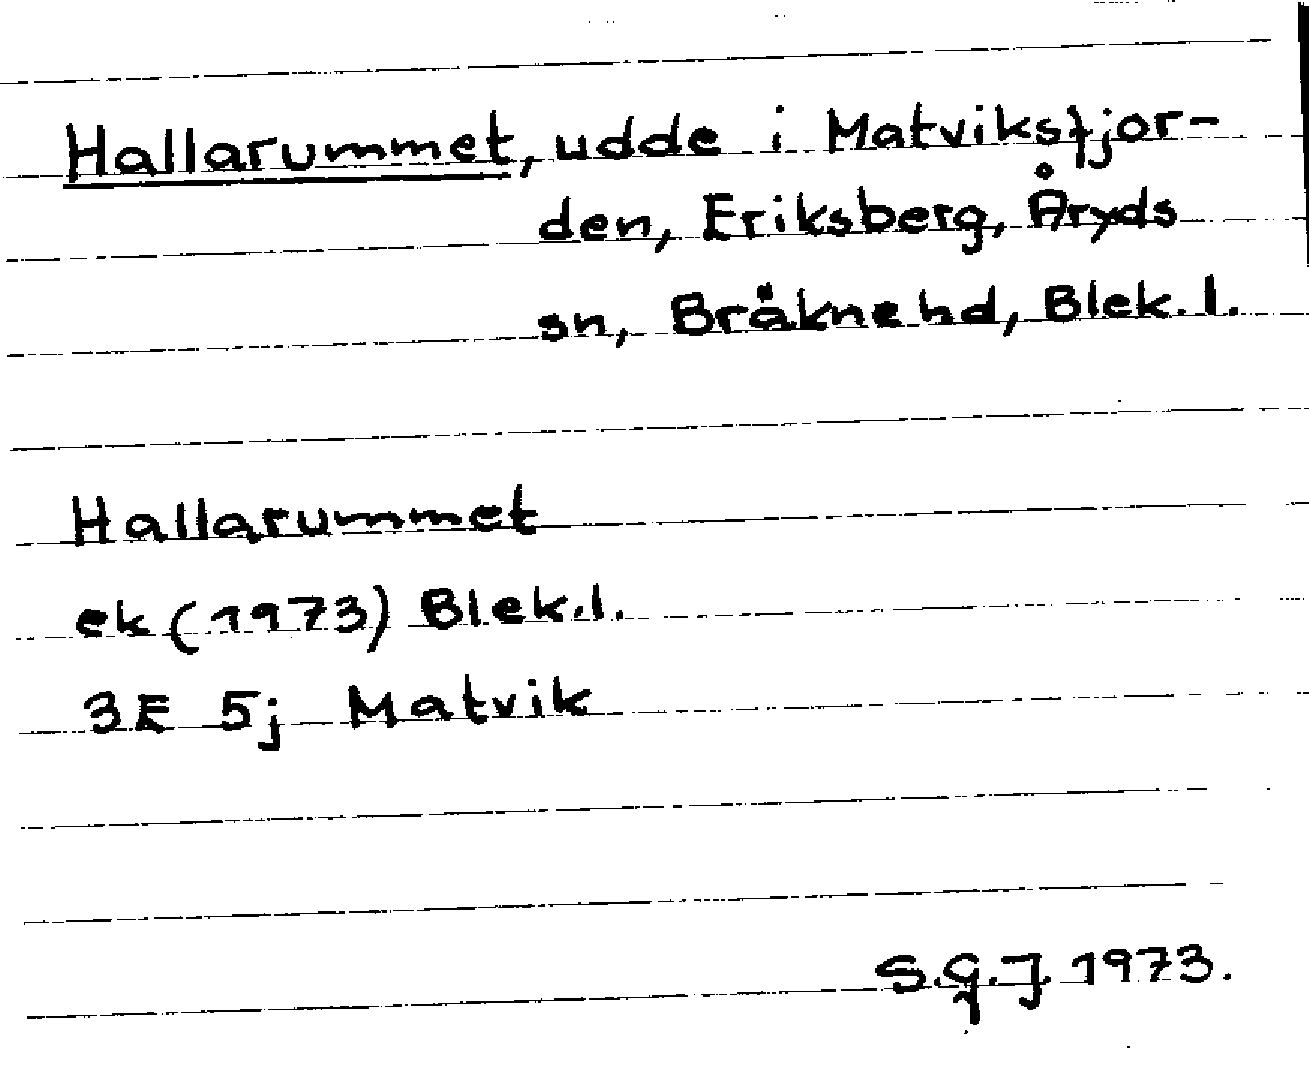 Hallarummet, udde i Matviksfjor-
den, Eriksberg, Åryds
sn, Bräkne hd, Blek. l.
Hallarummet
ek (1973) Blek. l.
3E 5j Matvik
S.G.J. 1973.